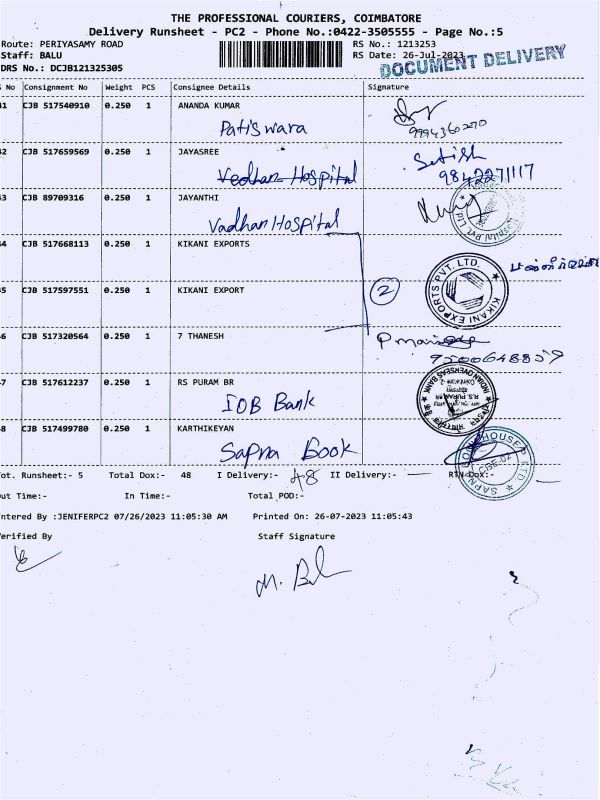 THE PROFESSIONAL COURIERS, COIMBATORE
Delivery Runsheet - PC2 - Phone No.:0422-3505555 - Page No.:5
Route: PERIYASAMY ROAD
RS No.: 1213253
Staff: BALU
RS Date: 26-Jul-2023
DRS No.: DCJB121325305
DOCUMENT DELIVERY
No Consignment No Weight PCS Consignee Details Signature
41 CJB 517540910 0.250 1 ANANDA KUMAR
Patiswara 9994360270
42 CJB 517659569 0.250 1 JAYASREE
Vedhan Hospital 9842271117
43 CJB 89709316 0.250 1 JAYANTHI
Vadhan Hospital
44 CJB 517668113 0.250 1 KIKANI EXPORTS
KIKANI EXPORTS PVT. LTD.
45 CJB 517597551 0.250 1 KIKANI EXPORT
2
46 CJB 517320564 0.250 1 7 THANESH
9500648859
47 CJB 517612237 0.250 1 RS PURAM BR
IOB Bank
INDIAN OVERSEAS BANK
48 CJB 517499780 0.250 1 KARTHIKEYAN
Sapna Book
SAPNA BOOK HOUSE P LTD.
CBE-02
Tot. Runsheet:- 5 Total Dox:- 48 I Delivery:- 48 II Delivery:- — RTN Dox:-
Out Time:- In Time:- Total POD:-
Entered By :JENIFERPC2 07/26/2023 11:05:30 AM Printed On: 26-07-2023 11:05:43
Verified By Staff Signature